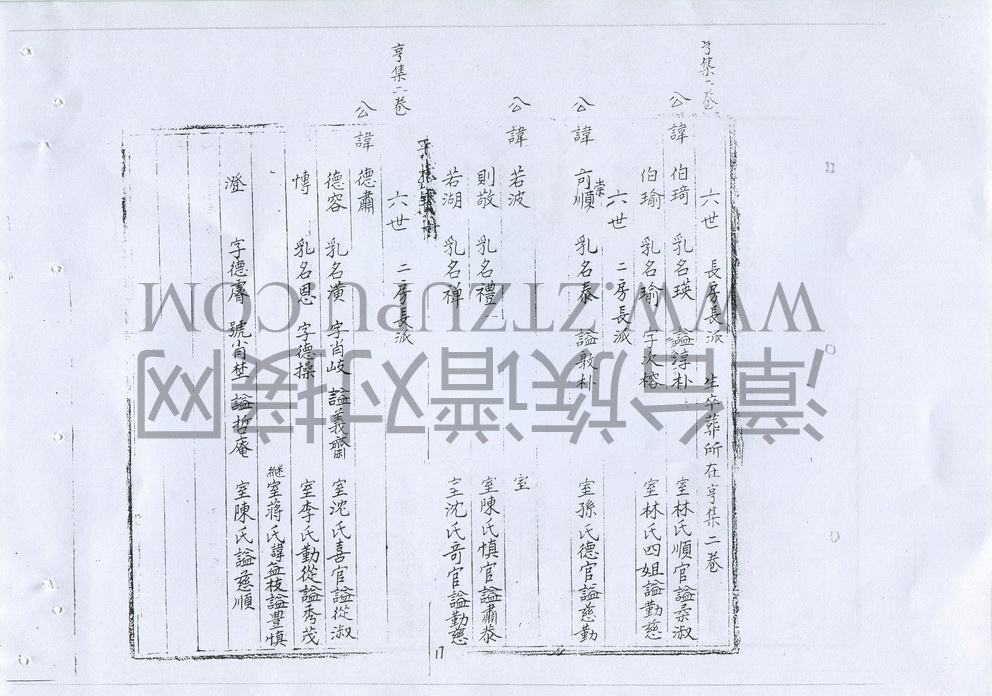 亨集二卷
六世 長房長派 生卒葬所在亨集二卷
公諱 伯琦 乳名瑛 諡淳朴 室林氏順官諡柔淑
伯瑜 乳名瑜 字次榕 室林氏四姐諡勤慈
六世 二房長派
公諱 可順 崇 乳名泰 諡敦朴 室孫氏德官諡慈勤
公諱 若波 室
則敬 乳名禮 室陳氏慎官諡肅恭
若湖 乳名禅 室沈氏奇官諡勤慈
亨集二卷
六世 二房長派
公諱 德肅
德容 乳名潢 字肖岐 諡義齋 室沈氏喜官諡從淑
慱 乳名恩 字德操 室李氏勤從諡秀茂
継室蔣氏諱益枝諡豐慎
澄 字德膚 號肖埜 諡哲庵 室陳氏諡慈順
17
WWW.ZTZUPU.COM
漳台族谱对接网